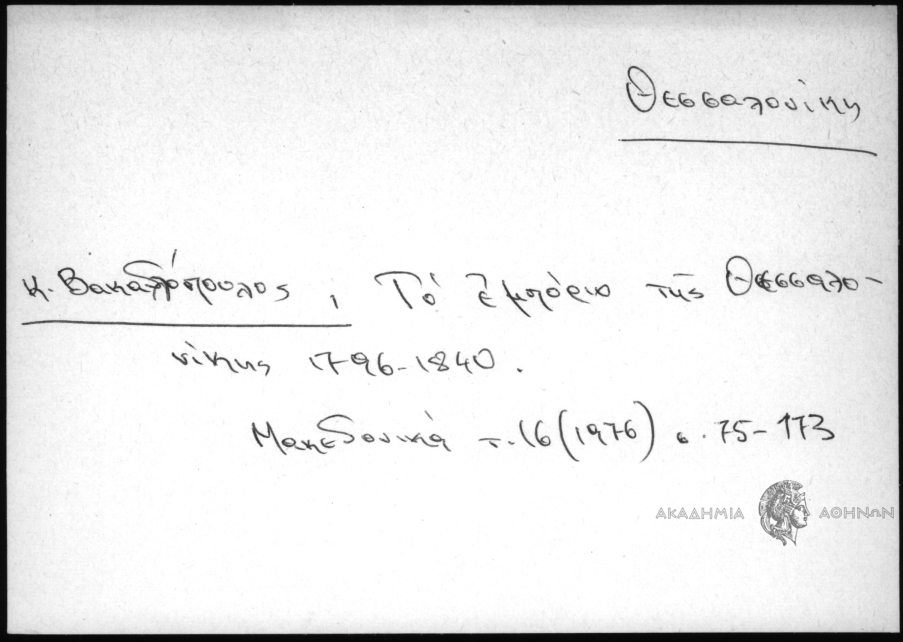 Θεσσαλονίκη
Κ. Βακαλόπουλος, Τό ἐμπόριο τῆς Θεσσαλο-
νίκης 1796-1840.
Μακεδονικά τ. 16 (1976) σ. 75-173
ΑΚΑΔΗΜΙΑ ΑΘΗΝΩΝ